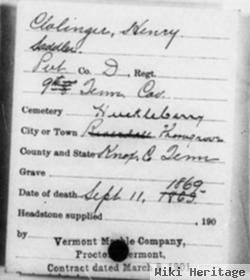 Clolinger, Henry
Saddler.
Pvt Co. D, Regt.
9th Tenn Cav.
Cemetery Huckleberry
City or Town Thorngrove
County and State Knox C Tenn
Grave
1869
Date of death Sept 11, 1865
Headstone supplied , 190
by
Vermont Marble Company,
Proctor, Vermont,
Contract dated 1901
Wiki Heritage